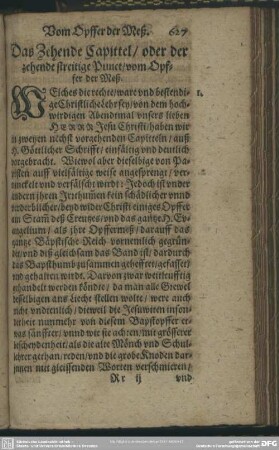 Vom Opffer der Meß. 627
Das Zehende Capittel/ oder der
zehende streitige Punct/ vom Opf-
fer der Meß.
WElches die rechte/ ware vnd bestendi- 1.
ge Christliche Lehr sey/ von dem hoch-
wirdigen Abendmal vnsers lieben
HERRN Jesu Christi/ haben wir
in zweyen nechst vorgehenden Capiteln/ auß
H. Göttlicher Schrifft/ einfältig vnd deutlich
vorgebracht. Wiewol aber dieselbige von Pa-
pisten auff vielfältige weise angefengt/ ver-
vnd verfälscht wirdt: Jedoch ist vnder
andern jhren Irrthumen kein schädlicher vnnd
wider Christi einiges Opffer
am Stamm deß Creutzes/ vnd das gantze H. Ev-
angelium/ als jhre Opffermeß/ darauff das
gantze Bäpstische Reich vornemlich gegrün-
det/ vnd diß gleichsam das Band ist/ dardurch
das Bapsthumb zusammen gehefftet/ gefasset/
vnd gehalten wirdt. Darvon zwar weitleufftig
gehandelt werden köndte/ da man alle Grewel
derselbigen ans Liecht stellen wolte/ were auch
nicht vndienlich/ dieweil die Jesuwiten insen-
derheit nunmehr von diesem Bapstopffer et-
was sänffter/ vnnd wie sie achten/ mit grösserer
bescheidenheit/ als die alte Mönch vnd Schul-
lehrer gethan/ reden/ vnd die grobe Knoden dar-
innen mit gleissenden Worten verschmieren/
Rr ij vnd